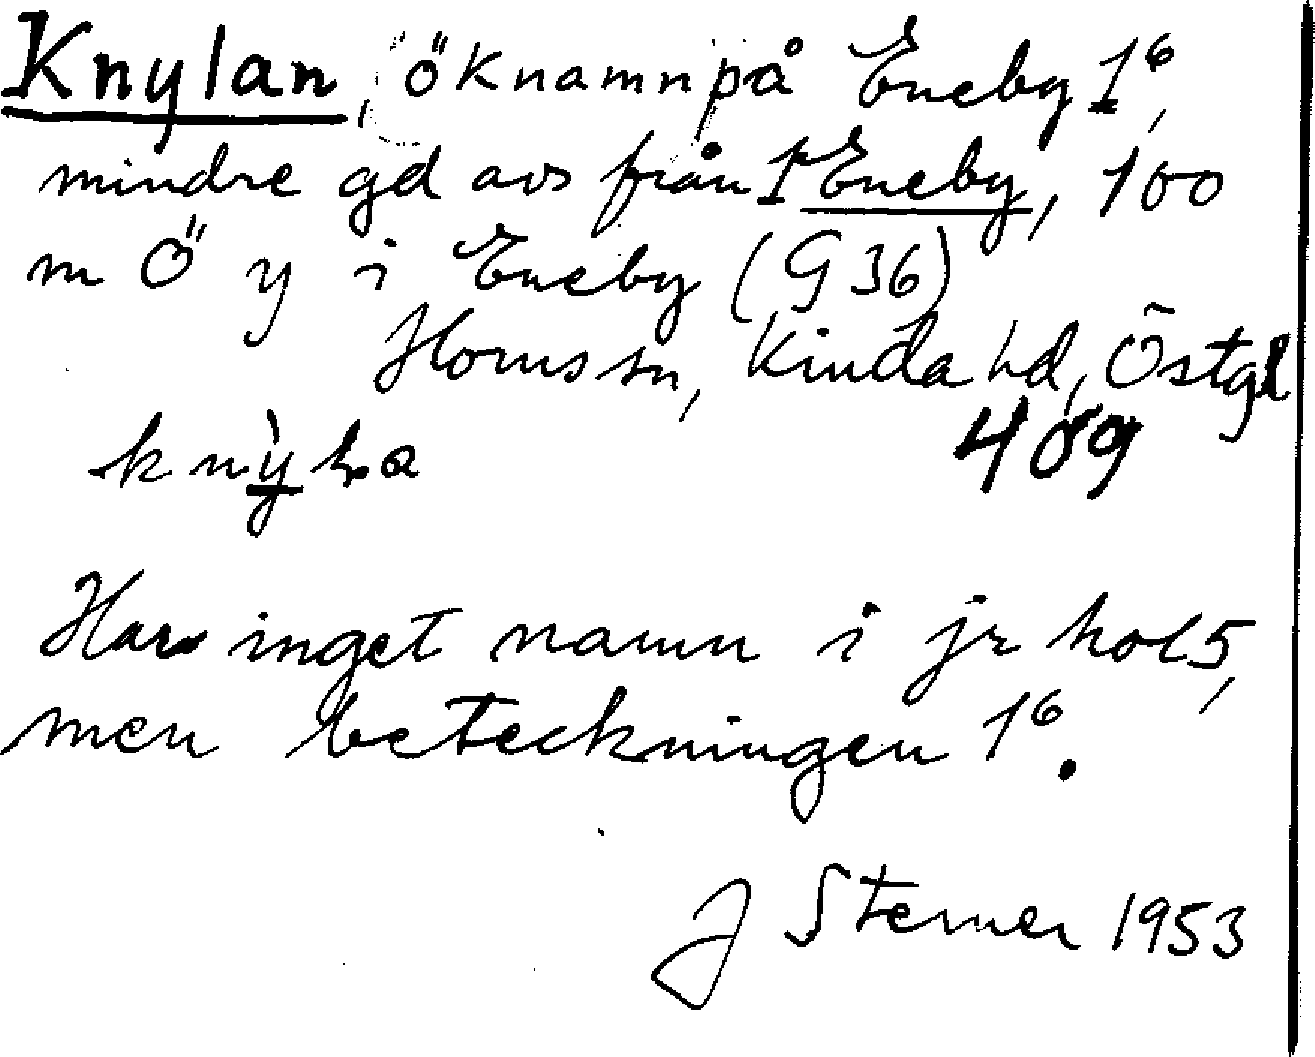 Knylan, öknamn på Eneby 1⁶,
mindre gd avs från 1⁴ Eneby, 100
m Ö y i Eneby (G 36)
Horns sn, Kinda hd, Östgl
409
Har inget namn i jr hos 5,
men beteckningen 1⁶.
J Sterner 1953